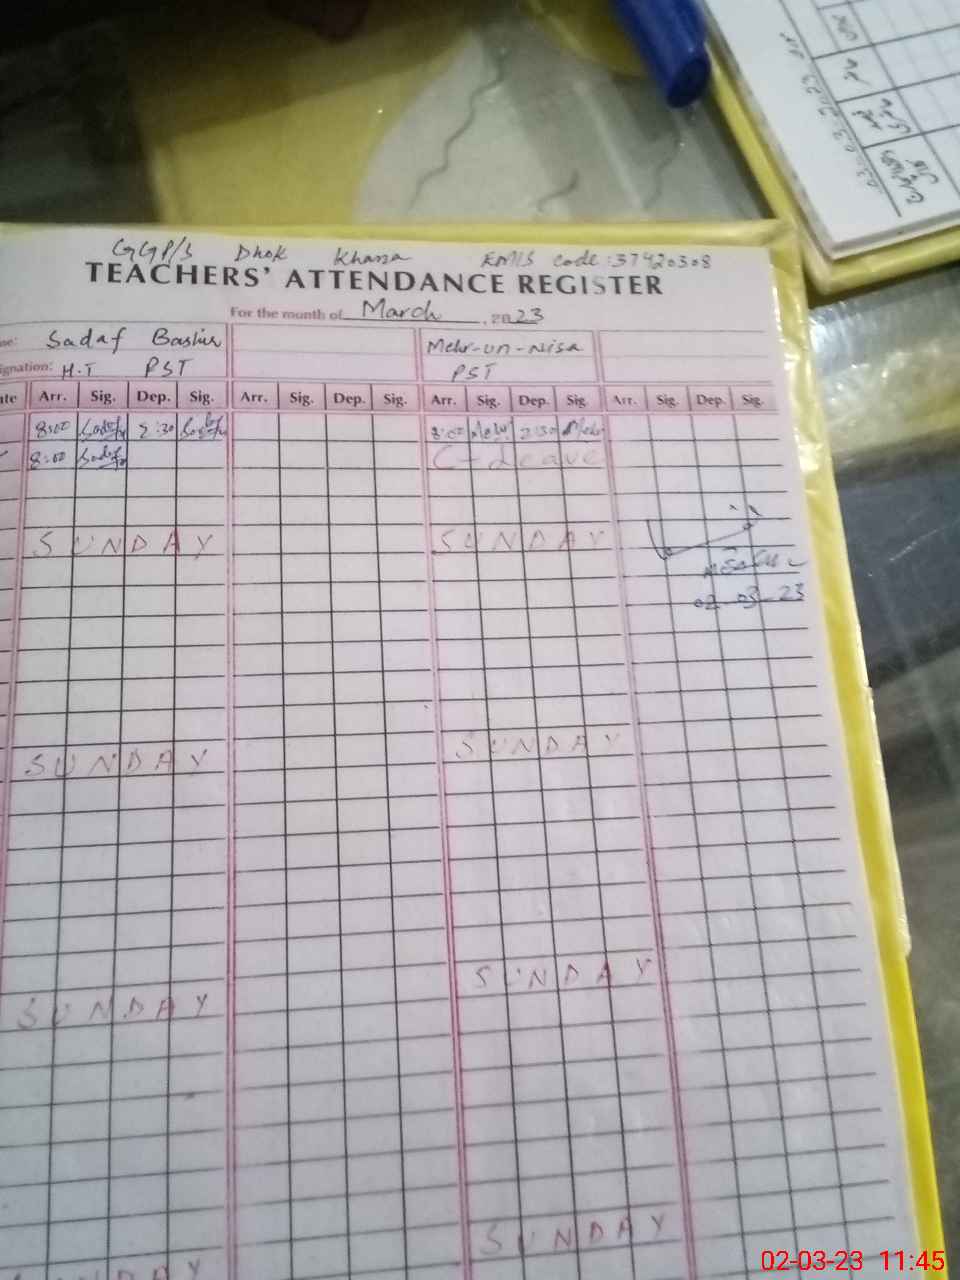 GGP/S Dhok Khana EMIS code: 37420308
TEACHERS' ATTENDANCE REGISTER
For the month of March, 2023
me: Sadaf Bashir Mehr-un-Nisa
ignation: H.T PST PST
te Arr. Sig. Dep. Sig. Arr. Sig. Dep. Sig. Arr. Sig. Dep. Sig. Arr. Sig. Dep. Sig.
8:00 Sadaf 2:30 Sadaf 8:00 Mehr 2:30 Mehr
8:00 Sadaf C-Leave
SUNDAY SUNDAY
02-03-23
SUNDAY SUNDAY
SUNDAY SUNDAY
SUNDAY
DAY
02-03-23 11:45